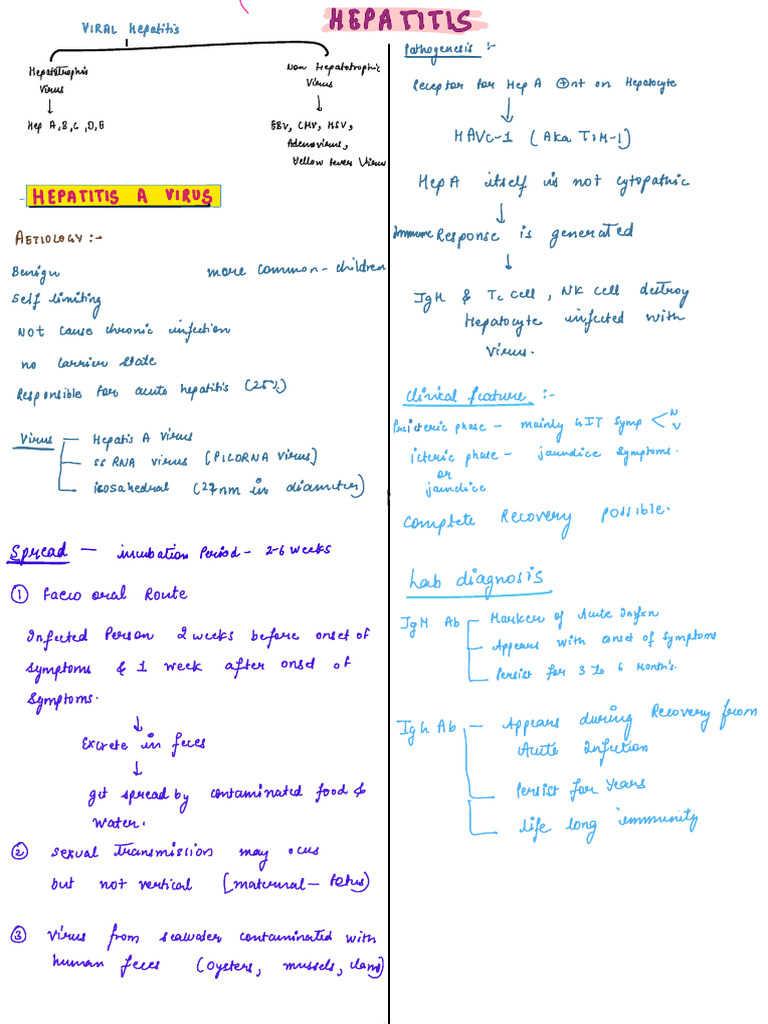 HEPATITIS
VIRAL Hepatitis
Hepatotrophic
Virus
Hep A, B, C, D, E
Non Hepatotrophic
Virus
EBV, CMV, HSV,
Adenovirus,
Yellow fever Virus
HEPATITIS A VIRUS
AETIOLOGY :-
Benign more common - children
Self limiting
Not cause chronic infection
no carrier state
Responsible for acute hepatitis (25%)
Virus
Hepatis A virus
ss RNA virus (PICORNA Virus)
icosahedral (27nm in diameter)
Spread — incubation Period - 2-6 weeks
① Faeco oral Route
Infected Person 2 weeks before onset of
symptoms & 1 week after onset of
Symptoms.
Excrete in feces
get spread by contaminated food &
water.
② Sexual Transmission may
but not vertical (maternal - fetus)
③ Virus from seawater contaminated with
human feces (oysters, mussels, clams)
Pathogenesis :-
Receptor for Hep A ⊕nt on Hepatocyte
HAVc-1 (Aka TIM-1)
Hep A itself is not cytopathic
Immune Response is generated
IgM & Tc cell, NK cell destroy
Hepatocyte infected with
virus.
Clinical feature :-
Preicteric phase - mainly GIT Symp < N
V
icteric phase - jaundice symptoms.
or
jaundice
Complete Recovery possible.
Lab diagnosis
IgM Ab
Marker of Acute Infxn
Appears with onset of symptoms
Persist for 3 to 6 Month's.
IgG Ab — Appears during Recovery from
Acute Infection
Persist for Years
life long immunity